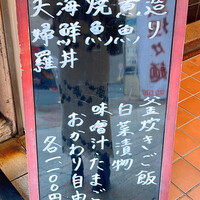 造り
煮魚
焼魚
海鮮丼
天婦羅
釜炊きご飯
白菜漬物
味噌汁・たまご
おかわり自由
各一、一〇〇円